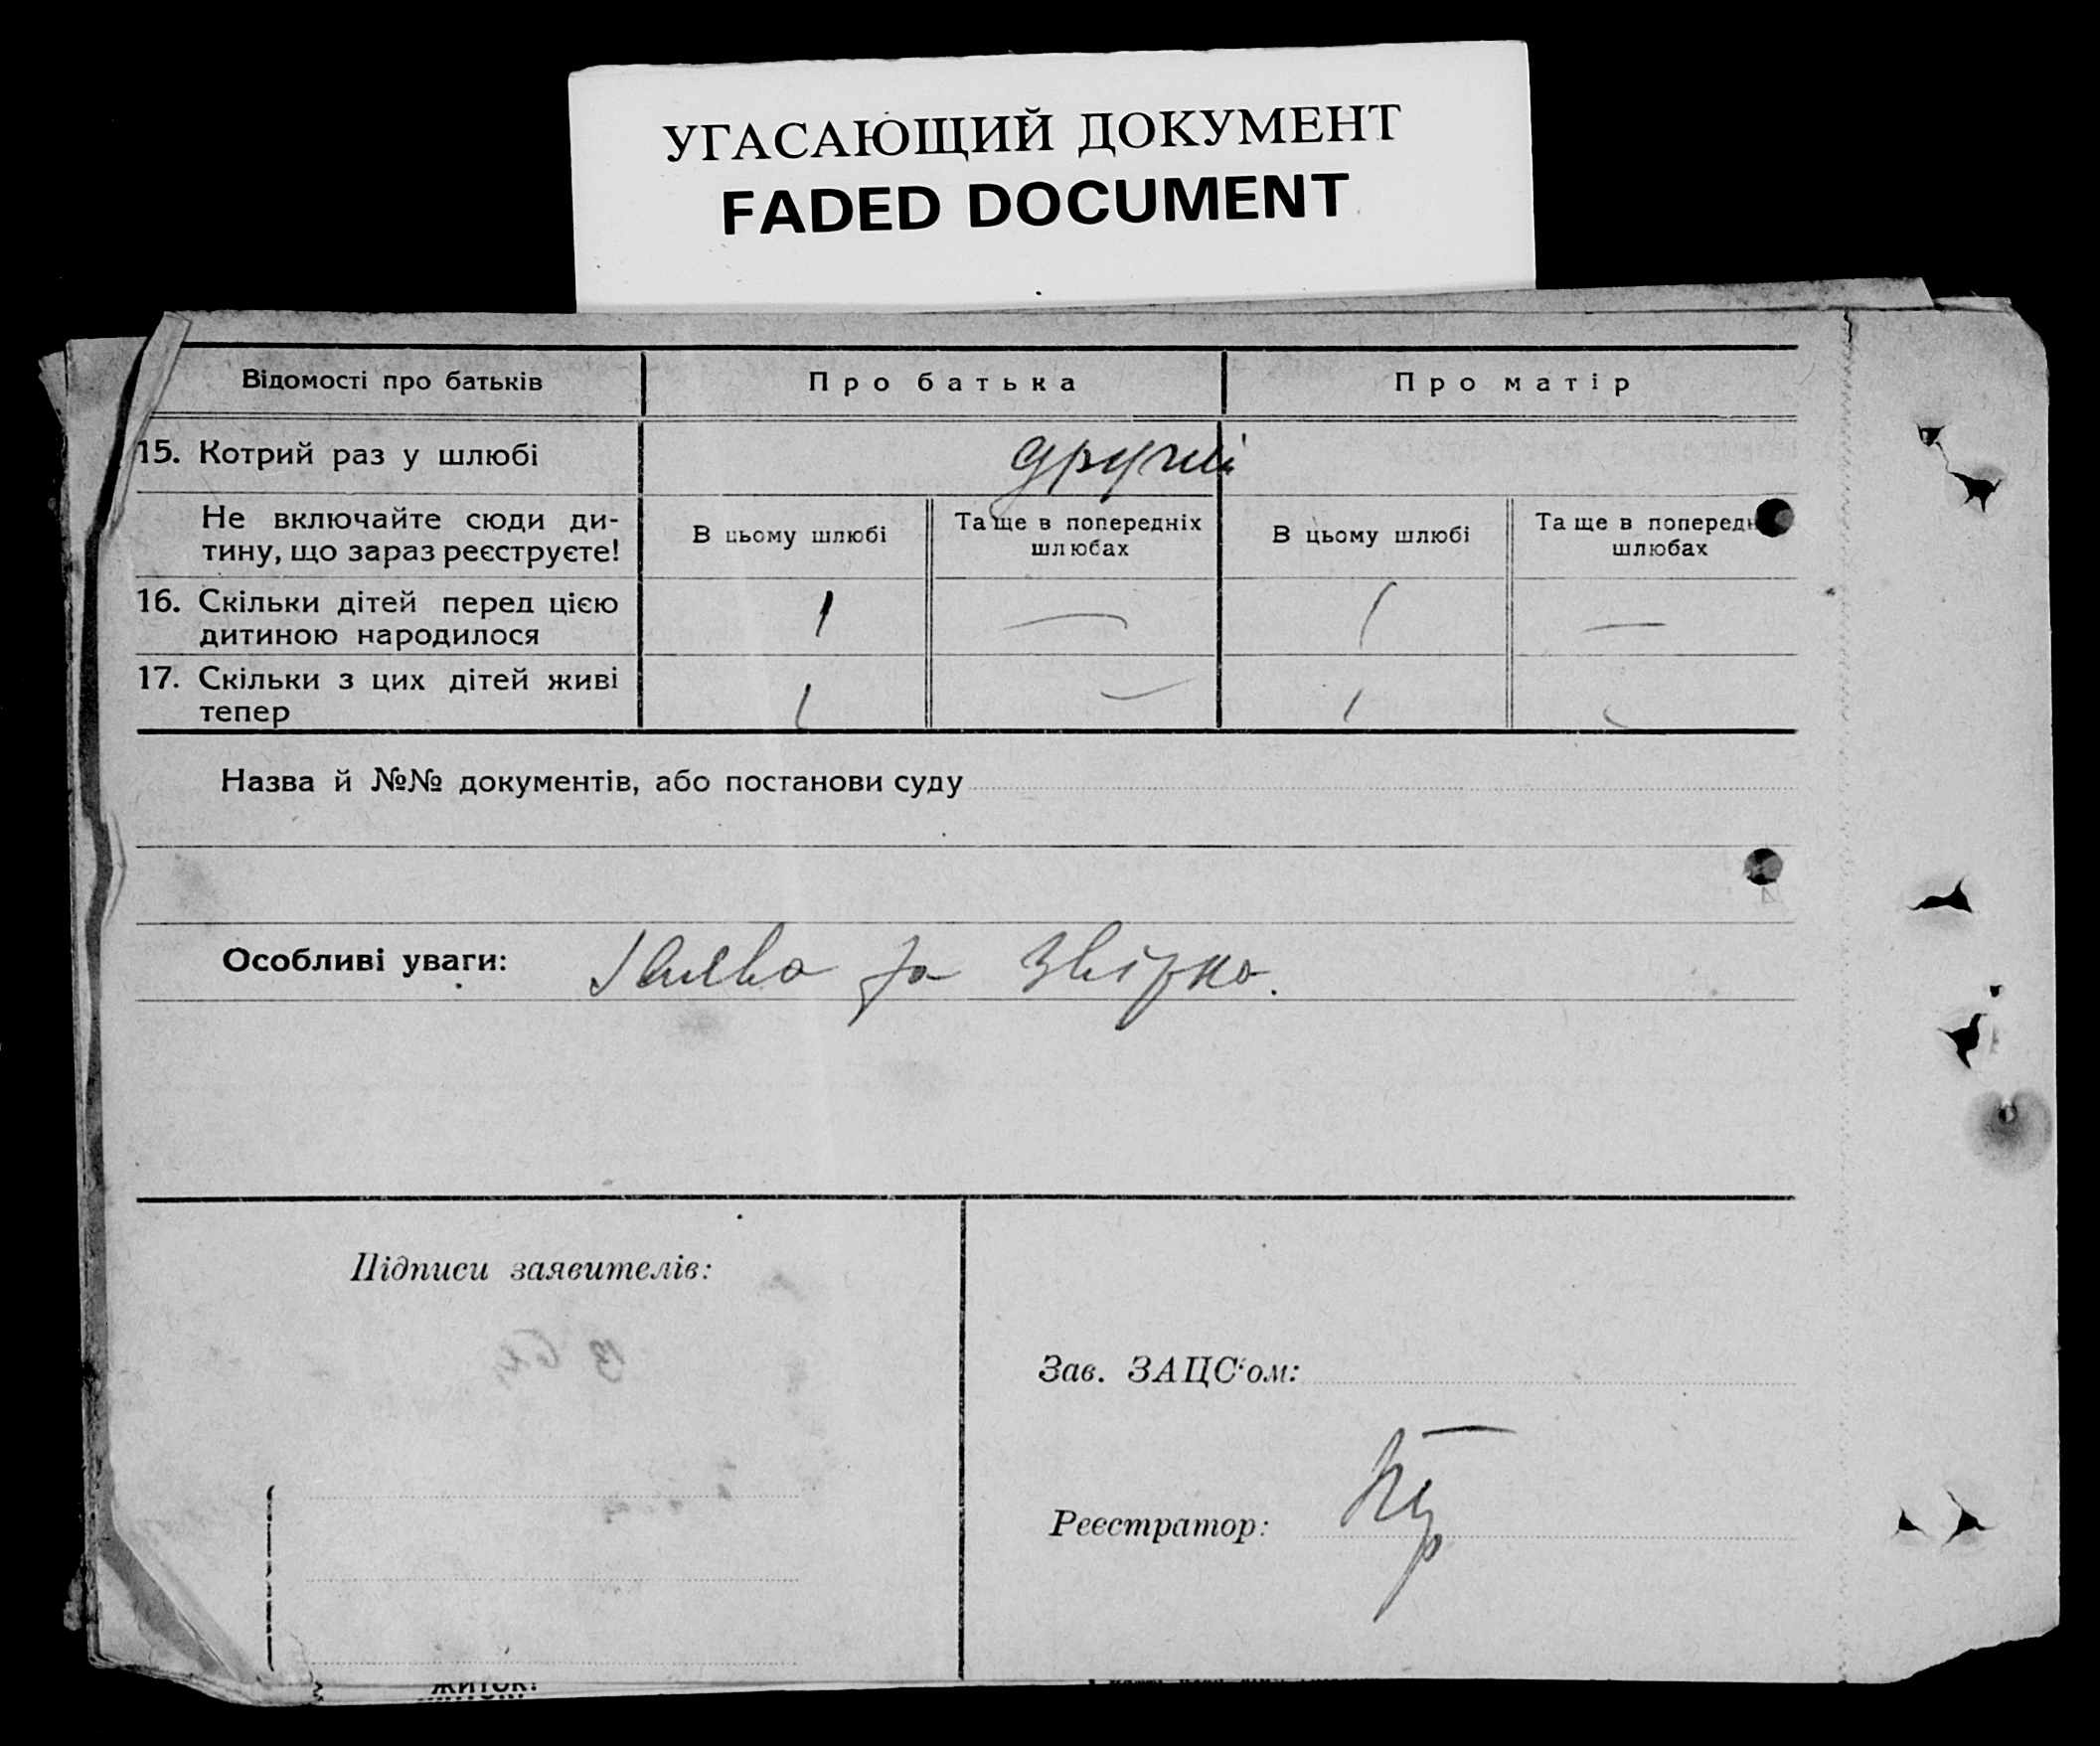 УГАСАЮЩИЙ ДОКУМЕНТ
FADED DOCUMENT
Відомості про батьків
Про батька
Про матір
15. Котрий раз у шлюбі
другий
Не включайте сюди ди-
тину, що зараз реєструєте!
В цьому шлюбі
Та ще в попередніх
шлюбах
В цьому шлюбі
Та ще в поперед
шлюбах
16. Скільки дітей перед цією
дитиною народилося
1 — 1 —
17. Скільки з цих дітей живі
тепер
1 — 1
Назва й №№ документів, або постанови суду
Особливі уваги:
Заява та звірка.
Підписи заявителів:
Зав. ЗАЦС'ом:
Реєстратор:
житок!